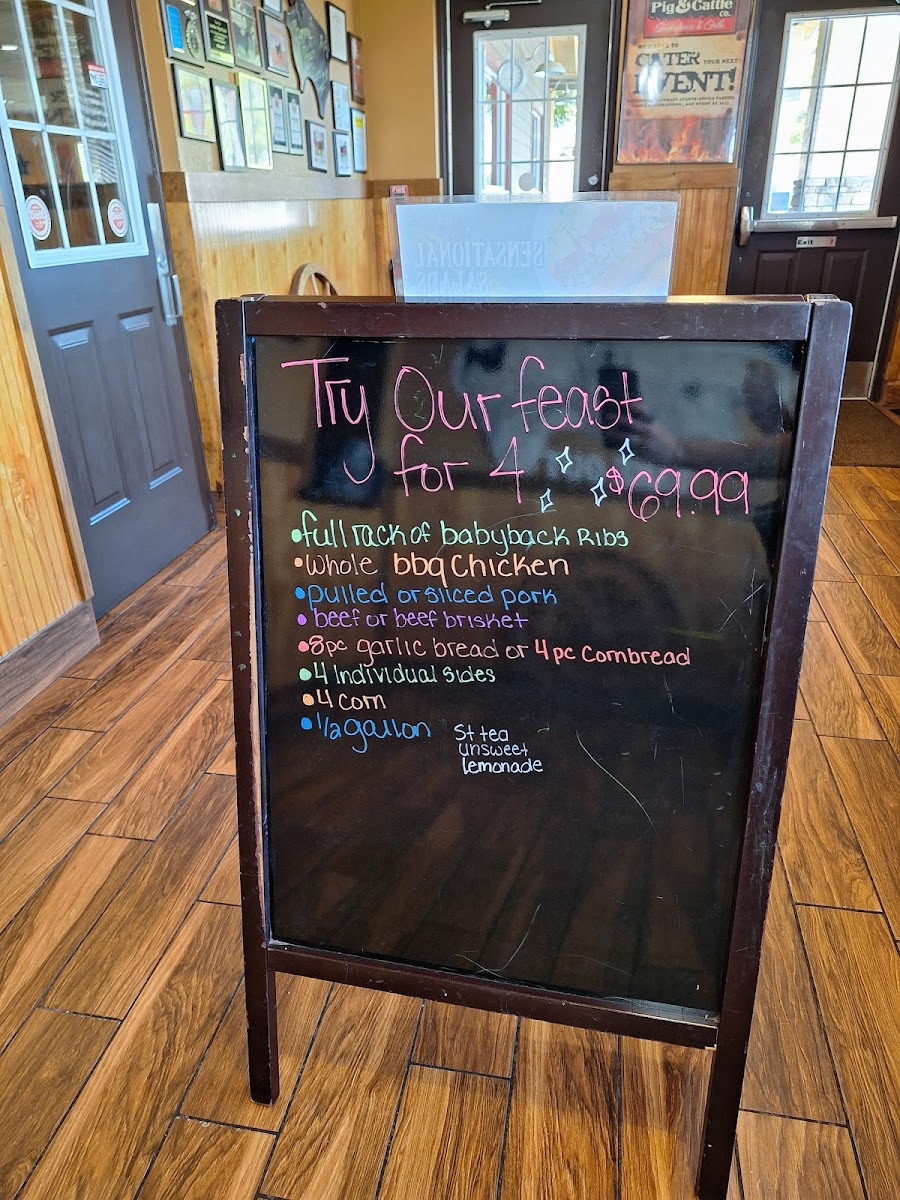 Pig & Cattle
CO.
CATER YOUR NEXT
EVENT!
Exit
SENSATIONAL
SALADS
Try Our feast
for 4 $69.99
•full rack of babyback Ribs
•Whole bbq Chicken
•pulled or sliced pork
•beef or beef brisket
•8pc garlic bread or 4pc Cornbread
•4 Individual Sides
•4 corn
•1/2 gallon St tea
unsweet
lemonade